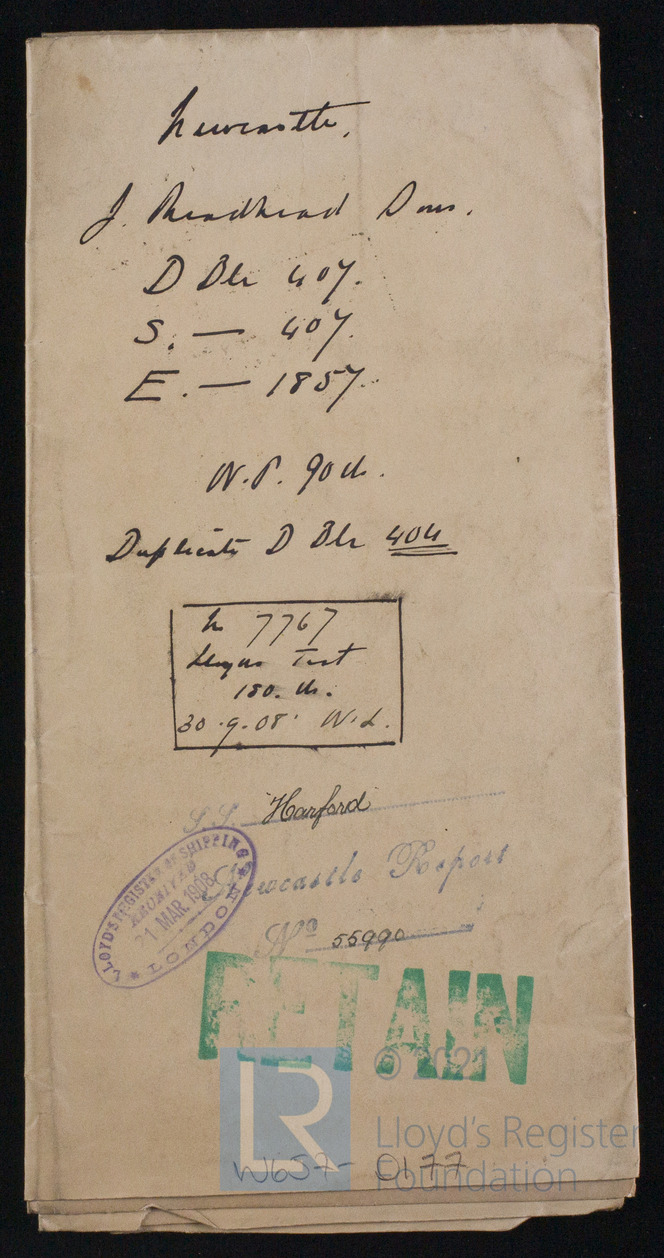 Newcastle.
J. Readhead Sons.
D Blr 407.
S. — 407.
E. — 1857.
W.P. 90 lb.
Duplicate D Blr 404
No 7767
Lloyds Test
180. lb.
30.9.08. W.L.
S.S. Harford
Newcastle Report
No 55990
LLOYD'S REGISTER OF SHIPPING
RECEIVED
21 MAR. 1908
LONDON
RETAIN
© 2021
LR
Lloyd's Register
Foundation
W657-0177